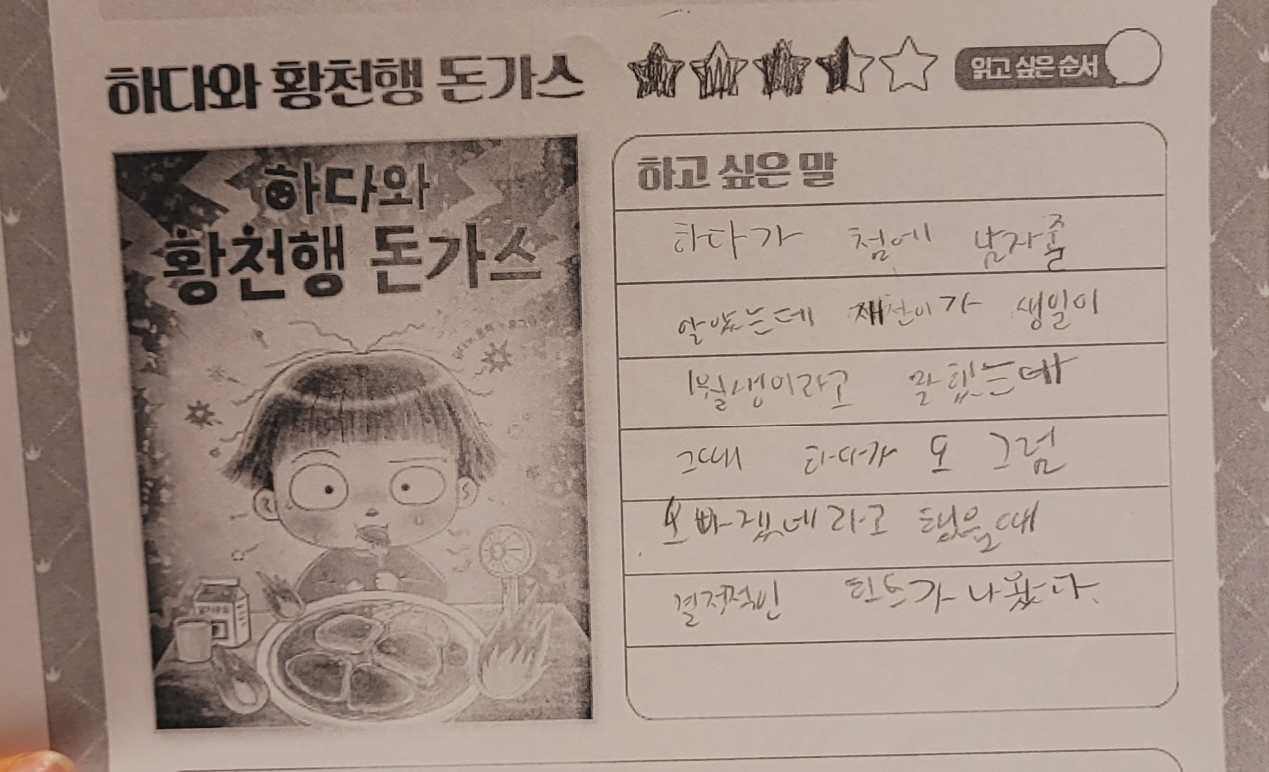 하다와 황천행 돈가스
읽고 싶은 순서
하다와
황천행 돈가스
하고 싶은 말
하다가 첨에 남자줄
알았는데 재찬이가 생일이
1월생이라고 말했는데
그때 하다가 또 그럼
오빠겠네라고 했을때
결정적인 힌트가 나왔다.